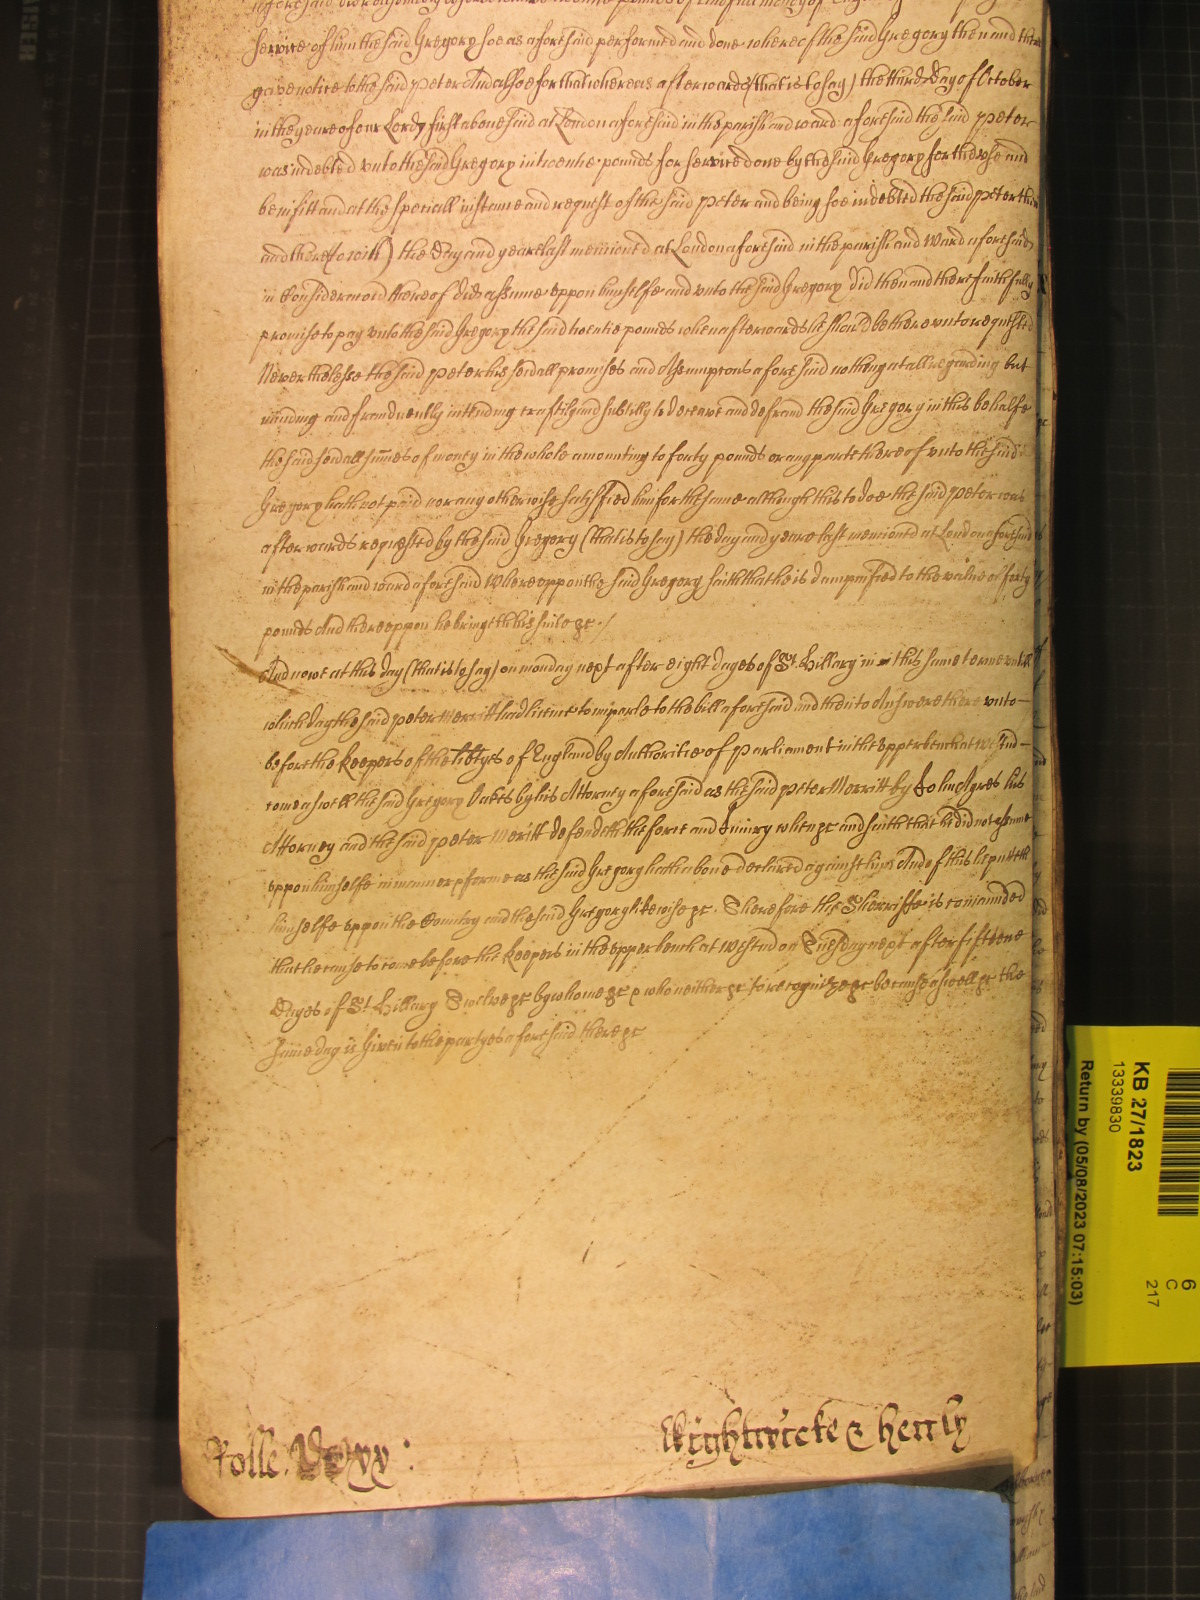 service of him the said Gregory soe as aforesaid performed and done whereof the said Gregory then and there
gave notice to the said Peter And alsoe for that whereas afterwards (that is to say) the third day of October
in the yeare of our Lord first abovesaid at London aforesaid in the parish and ward aforesaid the said Peter
was indebted unto the said Gregory in twentie pounds for service done by the said Gregory for the use and
benifitt and at the speciall instance and request of the said Peter and being soe indebted the said Peter then
and there (to witt) the day and yeare last mencioned at London aforesaid in the parish and Ward aforesaid
in Consideracion thereof did assume uppon himselfe and unto the said Gregory did then and there faithfully
promise to pay unto the said Gregory the said twentie pounds when afterwards he should be thereunto requested
Neverthelesse the said Peter his severall promises and Assumptions aforesaid nothing at all regarding but
minding and fraudulently intending craftily and subtilly to deceave and defraud the said Gregory in this behalfe
the said severall summes of money in the whole amounting to forty pounds or any parte thereof unto the said
Gregory hath not paid nor any otherwise satisfied him for the same although this to doe the said Peter was
afterwards requested by the said Gregory (that is to say) the day and yeare last mencioned at London aforesaid
in the parish and ward aforesaid Whereuppon the said Gregory saith that he is dampnified to the value of forty
pounds And thereuppon he bringeth his suite &c /
And nowe at this day (that is to say) on monday next after eight dayes of St. Hillary in this same terme untill
which day the said Peter Merritt had licence to imparle to the bill aforesaid and then to Answere thereunto
before the keepers of the libtyes of England by Authoritie of parliament in the upper bench at Westm
come aswell the said Gregory Oakes by his Attorney aforesaid as the said Peter Merritt by John Ayres his
Attorney and the said Peter Meritt defendeth the force and Iniury when &c and saith that he did not assume
uppon himselfe in manner & forme as the said Gregory hath above declared against him And of this he putteth
himselfe uppon the Country and the said Gregory likewise &c. Therefore the Sherriffe is comanded
that he cause to come before the keepers in the upper bench at Westm on Tuesday next after fifteene
dayes of St. Hillary Twelve &c by whome &c & who neither &c to recognize &c because aswell &c the
same day is given to the partyes aforesaid there &c
Wightwicke & Herrly
Rolle
KB 27/1823
13339830
Return by (05/08/2023 07:15:03)
6
C
217